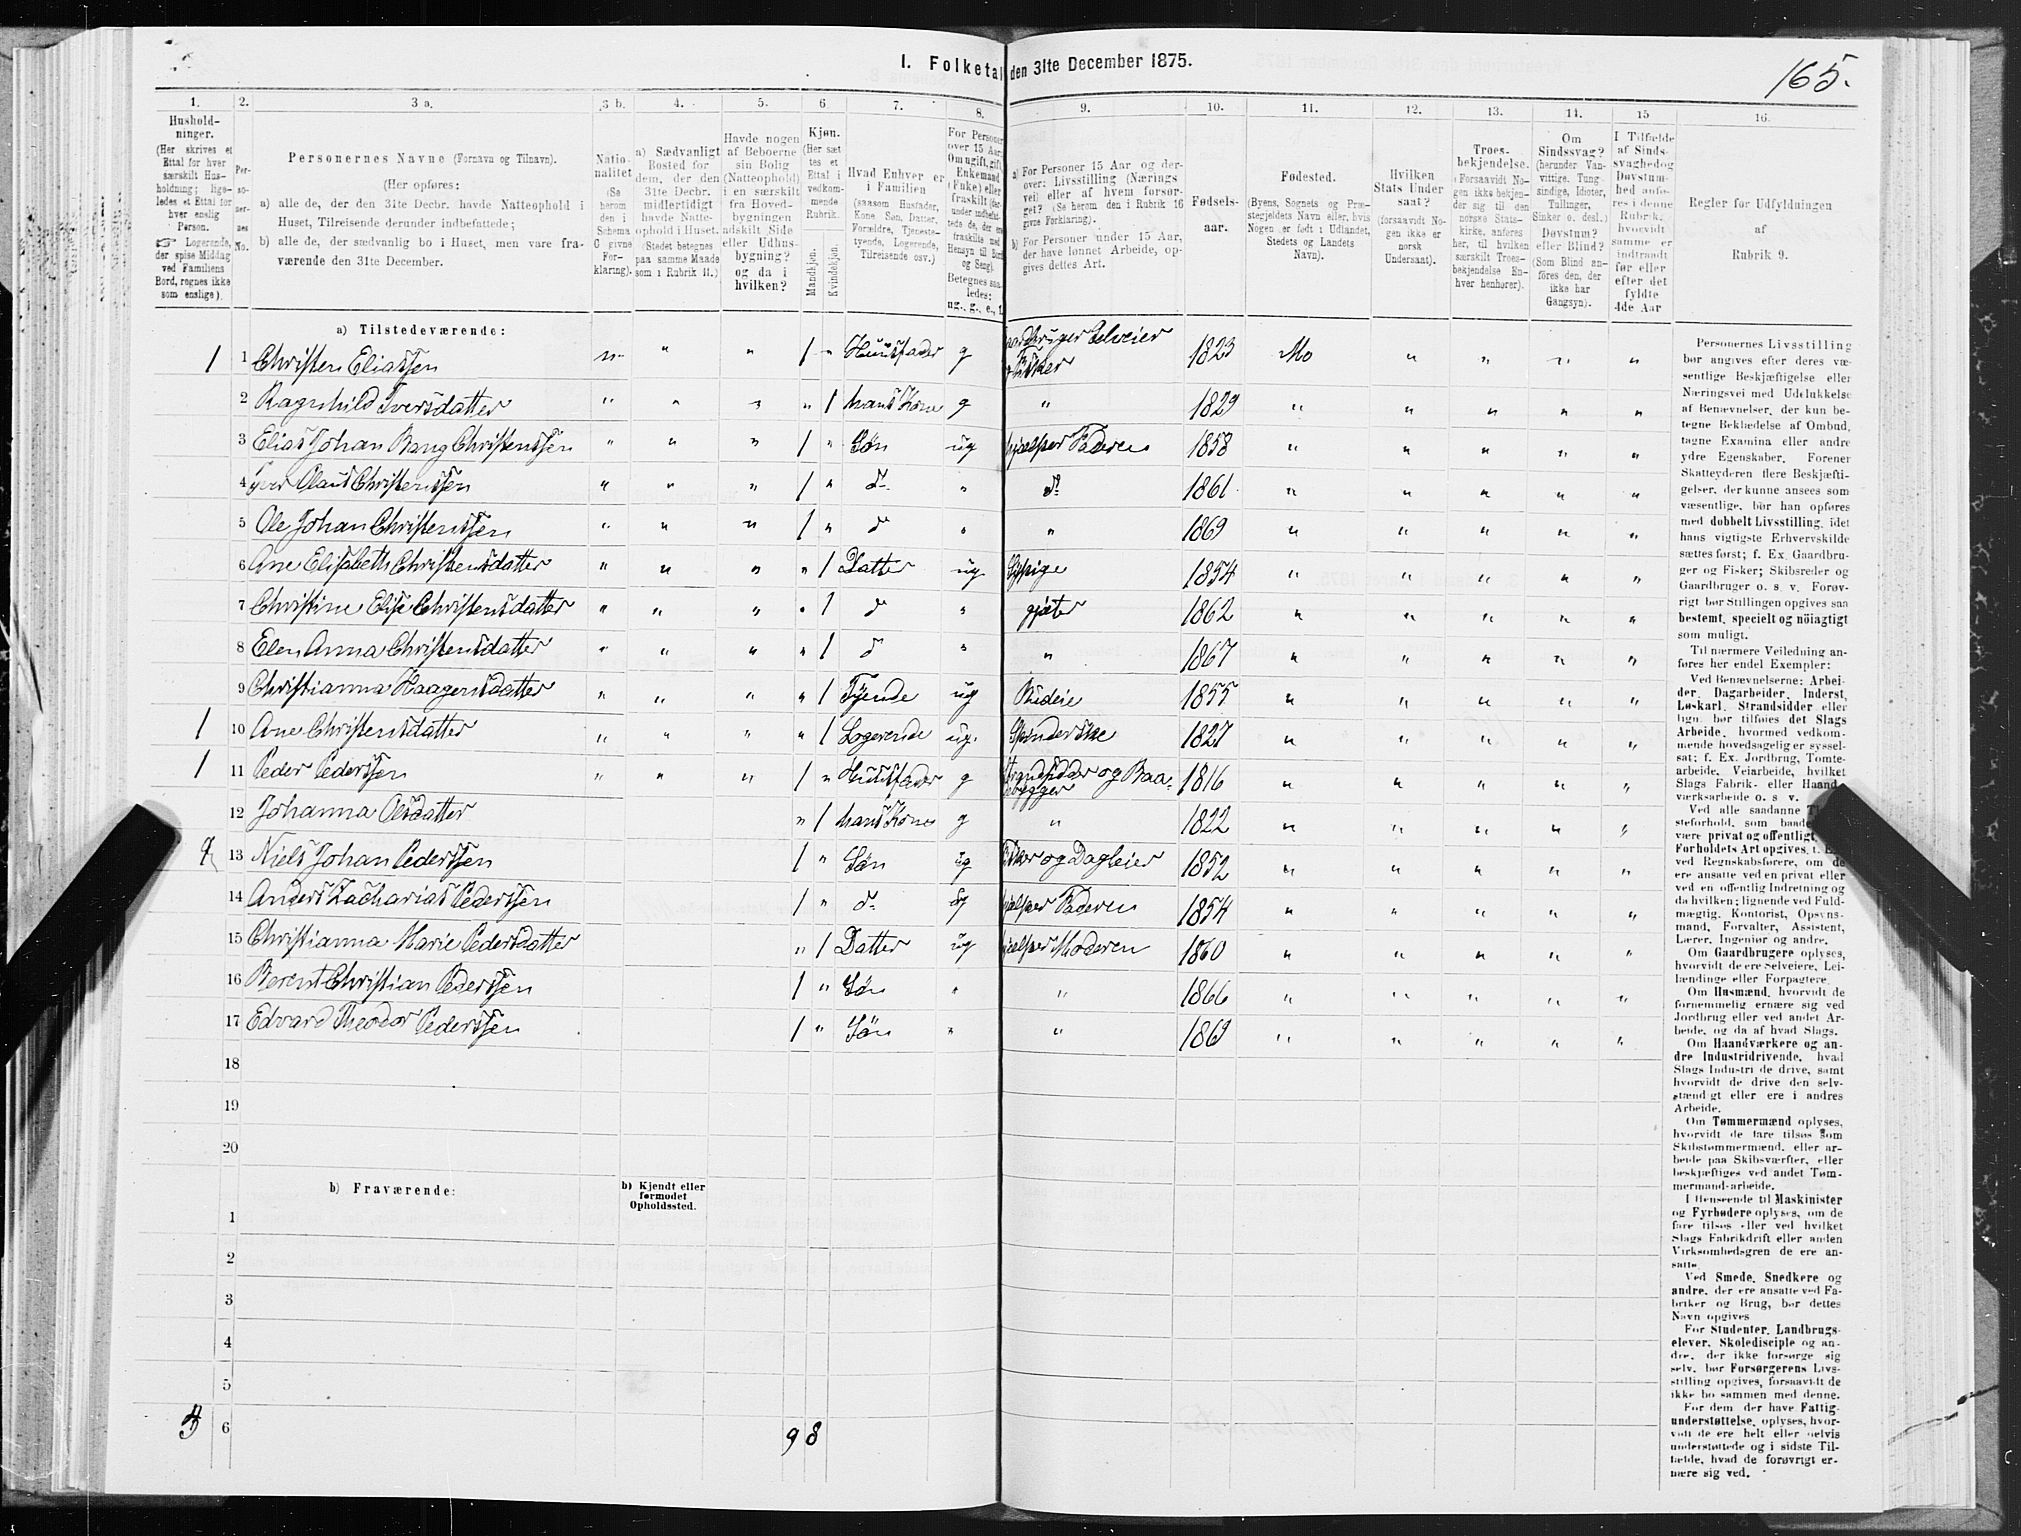 165.
I. Folketal den 31te December 1875.
1. 2. 3 a. 3 b. 4. 5. 6 7. 8. 9. 10. 11. 12. 13. 14. 15 16.
Husholdninger.
(Her skrives et
Ettal for hver
særskilt Hus-
holdning; lige-
ledes et Ettal for
hver enslig
Person.
☞ Logerende,
der spise Middag
ved Familiens
Bord, regnes ikke
som enslige).
Per-
so-
ner-
nes
No.
Personernes Navne (Fornavn og Tilnavn).
(Her opføres:
a) alle de, der den 31te Decbr. havde Natteophold i
Huset, Tilreisende derunder indbefattede;
b) alle de, der sædvanlig bo i Huset, men vare fra-
værende den 31te December.
Natio-
nalitet
(Se
herom
den i
Schema
C givne
For-
klaring).
a) Sædvanligt
Bosted for
dem, der den
31te Decbr.
midlertidigt
havde Natte-
ophold i Huset.
(Stedet betegnes
paa samme Maade
som i Rubrik 11.)
Havde nogen
af Beboerne
sin Bolig
(Natteophold)
i en særskilt
fra Hoved-
bygningen
adskilt Side
eller Udhus-
bygning?
og da i
hvilken?
Kjøn.
(Her sæt
tes et
Ettal i
vedkom-
mende
Rubrik.
Mandkjøn.
Kvindekjøn.
Hvad Enhver er
i Familien
(saasom Husfader,
Kone Søn, Datter,
Forældre, Tjeneste-
tyende, Logerende,
Tilreisende osv.)
For Personer
over 15 Aar:
Om ugift, gift,
Enkemand
(Enke) eller
fraskilt
Betegnes saa-
ledes:
ug., g., e., f.
a) For Personer 15 Aar og der-
over: Livsstilling (Nærings
vei) eller af hvem forsør-
get? (Se herom den i Rubrik 16
givne Forklaring).
b) For Personer under 15 Aar,
der have lønnet Arbeide, op-
gives dettes Art.
Fødsels-
aar.
Fødested.
(Byens, Sognets og Præ-
stegjeldets Navn eller, hvis
Nogen er født i Udlandet,
Stedets og Landets
Navn).
Hvilken
Stats Under
saat?
(forsaavidt No-
gen ikke er
norsk
Undersaat).
Troes-
bekjendelse.
(Forsaavidt No-
gen ikke bekjen-
der sig til den
norske Stats-
kirke, anføres
her, til hvilken
særskilt Troes-
bekjendelse En-
hver henhører).
Om
Sindssvag?
(herunder Van-
vittige, Tung-
sindige, Idioter,
Tullinger,
Sinker o. desl.)
Døvstum?
eller Blind?
(Som Blind an-
føres den, der
ikke har
Gangsyn).
I Tilfælde
af Sinds-
svaghed og
Døvstum-
hed anfø-
res i denne
Rubrik,
hvorvidt
samme er
indtraadt
før eller
efter det
fyldte
4de Aar
Regler for Udfyldningen
af
Rubrik 9.
a) Tilstedeværende:
1 1 Christen Eliassen n " " 1 " Huusfader g Gaardbruger Selveier og Fisker 1823 Mo " " " "
2 Ragnhild Iversdatter " " " " 1 hans Kone g " 1829 " " " " "
3 Elias Johan Bang Christenssen " " " 1 " Søn ug hjælper Faderen 1858 " " " " "
4 Iver Olaus Christenssen " " " 1 " d- " do 1861 " " " " "
5 Ole Johan Christenssen " " " 1 " d " " 1869 " " " " "
6 Ane Elisabeth Christensdatter " " " " 1 Datter ug Sypige 1854 " " " " "
7 Christine Elise Christensdatter " " " " 1 d " gjæter 1862 " " " " "
8 Elen Anna Christensdatter " " " " 1 d " " 1867 " " " " "
9 Christianna Haagensdatter " " " " 1 Tyende ug Budeie 1855 " " " " "
1 10 Ane Christensdatter " " " " 1 Logerende ug. Spinderske 1827 " " " " "
1 11 Peder Pederssen " " " 1 " Huusfader g Strandsidder og Baadbygger 1816 " " " " "
12 Johanna Olsdatter " 1 hans Kone g " 1822 " " " " "
13 Niels Johan Pederssen 1 " Søn ug Fisker og Dagleier 1852 " " " " "
14 Anders Zacharias Pederssen 1 " d- ug hjælper Faderen 1854 " " " " "
15 Christianna Marie Pedersdatter " 1 Datter ug hjælper Moderen 1860 " " " " "
16 Berent Christian Pederssen 1 " Søn " " 1866 " " " " "
17 Edvard Theodor Pederssen 1 " Søn " " 1869 " " " " "
18
19
20
b) Fraværende:
b) Kjendt eller
formodet
Opholdssted.
1
2
3
4
5
6
9 8
Personernes Livsstilling
bør angives efter deres væ-
sentlige Beskjæftigelse eller
Næringsvei med Udelukkelse
af Benævnelser, der kun be-
tegne Beklædelse af Ombud,
tagne Examina eller andre
ydre Egenskaber. Forener
Skatteyderen flere Beskjæfti-
gelser, der kunne ansees som
væsentlige, bør han opføres
med dobbelt Livsstilling, idet
hans vigtigste Erhvervskilde
sættes først; f. Ex. Gaardbru-
ger og Fisker; Skibsreder og
Gaardbruger o. s. v. Forøv-
rigt bør Stillingen opgives saa
bestemt, specielt og nöiagtigt
som muligt.
Til nærmere Veiledning an-
føres her endel Exempler:
Ved Benævnelserne: Arbei-
der, Dagarbeider, Inderst,
Løskarl, Strandsidder eller
lign. bør tilføies det Slags
Arbeide, hvormed vedkom-
mende hovedsagelig er syssel-
sat; f. Ex. Jordbrug, Tomte-
arbeide, Veiarbeide, hvilket
Slags Fabrik- eller Haand-
værksarbeide o. s. v.
Ved alle saadanne
steforhold, som baade
være privat og offentligt
Forholdets Art opgives,
ved Regnskabsførere, om de
ere ansatte ved en privat eller
ved en offentlig Indretning og
da hvilken; lignende ved Fuld-
mægtig, Kontorist, Opsyns-
mand, Forvalter, Assistent,
Lærer, Ingeniør og andre.
Om Gaardbrugere oplyses,
hvorvidt de ere Selveiere, Lei-
lændinge eller Forpagtere.
Om Husmænd, hvorvidt de
fornemmelig ernære sig ved
Jordbrug eller ved andet Ar-
beide, og da af hvad Slags.
Om Haandværkere og an-
dre Industridrivende, hvad
Slags Industri de drive, samt
hvorvidt de drive den selv-
stændigt eller ere i andres
Arbeide.
Om Tømmermænd oplyses,
hvorvidt de fare tilsøs som
Skibstømmermænd, eller ar-
beide paa Skibsværfter, eller
beskjæftiges ved andet Tøm-
mermand-arbeide.
I Henseende til Maskinister
og Fyrbødere oplyses, om de
fare tilsøs eller ved hvilket
Slags Fabrikdrift eller anden
Virksomhedsgren de ere an-
satte.
Ved Smede, Snedkere og
andre, der ere ansatte ved Fa-
briker og Brug, bør dettes
Navn opgives
For Studenter, Landbrugs-
elever, Skoledisciple og an-
dre, der ikke forsørge sig
selv, bør Forsørgerens Livs-
stilling opgives, forsaavidt de
ikke bo sammen med denne.
For dem, der have Fattig-
understøttelse, oplyses, hvor-
vidt de ere helt eller delvis
understøttede og i sidste Til-
fælde, hvad de forøvrigt er-
nære sig ved.